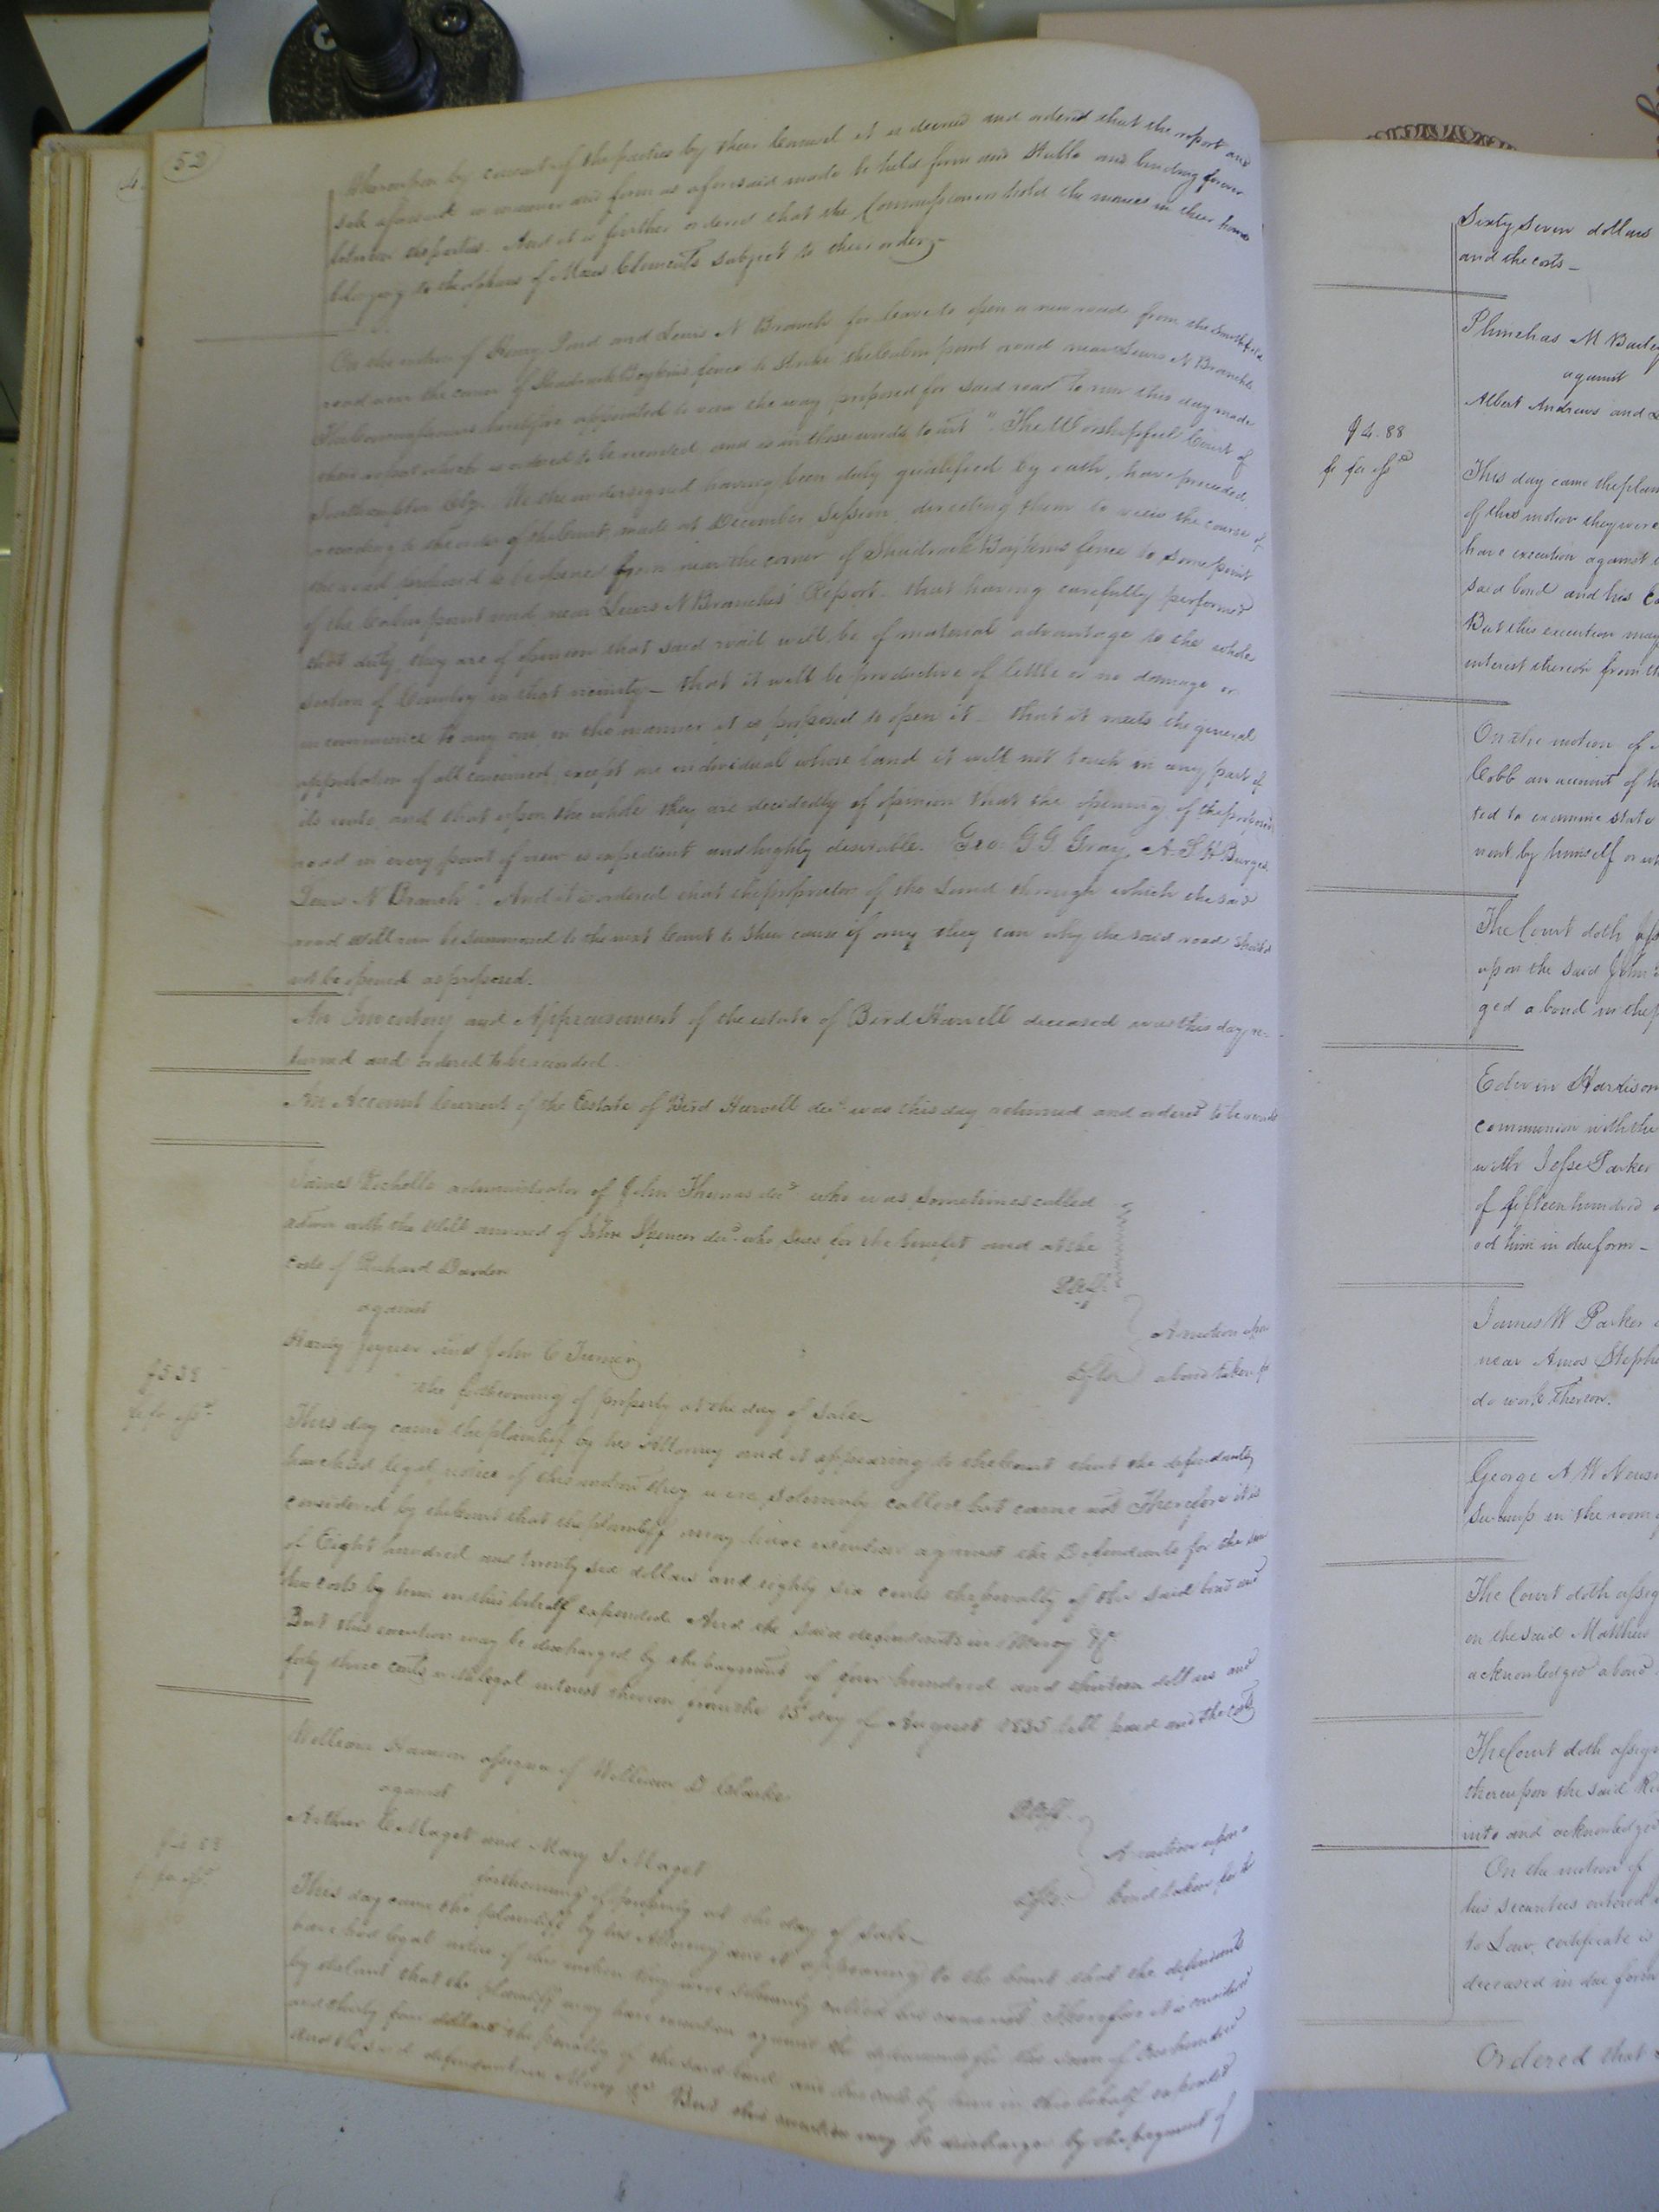 52
Whereupon by consent of the parties by their Counsel it is decreed and ordered that the report and
sale aforesaid in manner and form as aforesaid made be held firm and stable and binding forever
between the parties. And it is further ordered that the Commissioners hold the monies in their hands
belonging to the orphans of Clements subject to their order,
On the motion of Henry and Lewis N Branch for leave to open a new road from the Smithfield
road near the corner of Shadrack Boykins fence to strike the Cabin point road near Lewis N Branches
The Commissioners heretofore appointed to view the way proposed for said road to run this day made
their report which is ordered to be recorded and is in these words, to wit " The Worshipful Court of
Southampton Cty. We the undersigned having been duly qualified by oath, have proceeded,
according to the order of the Court made at December Session, directing them to view the course of
the road proposed to be opened from near the corner of Shadrack Boykins fence to some point
of the Cabin point road near Lewis N Branches' Report. that having carefully performed
that duty they are of opinion that said road will be of material advantage to the whole
section of Country in that vicinity — that it will be productive of little or no damage or
inconvenience to any one, in the manner it is proposed to open it — that it meets the general
approbation of all concerned, except one individual whose land it will not touch in any part of
its route, and that upon the whole they are decidedly of opinion that the opening of the proposed
road in every point of view is expedient and highly desirable. Geo. G G Gray, A. S H Burges
Lewis N Branch". And it is ordered that the proprietor of the Land through which the said
road will run be summoned to the next Court to shew cause if any they can why the said road should
not be opened as proposed.
An Inventory and Appraisement of the estate of Bird Harvell deceased was this day re-
turned and ordered to be recorded.
An Account Current of the Estate of Bird Harvell decd. was this day returned and ordered to be recorded
James Nicholls administrator of John Thomas decd. who was sometimes called
admr with the Will annexed of John Spencer decd. who sues for the benefit and at the
costs of Richard Darden
Pltff.
against
A motion upon
Hardy Joyner and John C Turner
Dfts
a bond taken for
the forthcoming of property at the day of sale—
$5.38
fi fa issd.
This day came the plaintiff by his Attorney and it appearing to the Court that the defendants
have had legal notice of this motion they were solemnly called but came not Therefore it is
considered by the Court that the plaintiff may have execution against the Defendants for the sum
of Eight hundred and twenty six dollars and eighty six cents the penalty of the said bond and
his costs by him in this behalf expended. And the said defendants in Mercy &c.
But this execution may be discharged by the payment of four hundred and thirteen dollars and
forty three cents with legal interest thereon from the 15th day of August 1835 till paid and the costs
William assignee of William D Clarke
Pltff.
against
A motion upon a
Arthur C Maget and Mary S Maget
Dfts.
bond taken for the
forthcoming of property at the day of sale—
fi fa issd.
This day came the plaintiff by his Attorney and it appearing to the Court that the defendants
have had legal notice of this motion they were solemnly called but came not Therefore it is considered
by default that the plaintiff may have execution against the defendants for the sum of hundred
and thirty four dollars the penalty of the said bond and his costs by him in this behalf expended
And the said defendants in Mercy &c. But this execution may be discharged by the payment of
Sixty seven dollars
and the costs—
Phinehas M
against
Albert Andrews and
$4.88
fi fa issd
This day came the plain
of this motion they were
have execution against
said bond and his
But this execution may
interest thereon from th
On the motion of
Cobb an account of
ted to examine state
ment by himself or
The Court doth
upon the said John
ged a bond in the
Edwin Harrison
communion with the
with Jesse Parker
of fifteen hundred
ed him in due form—
James W Parker
near Amos Steph
do work thereon.
George A W
in the room
The Court doth assig
on the said Matthew
acknowledged a bond
The Court doth assign
thereupon the said
into and acknowledged
On the motion of
his securities entered
to Law, certificate is
deceased in due form
Ordered that